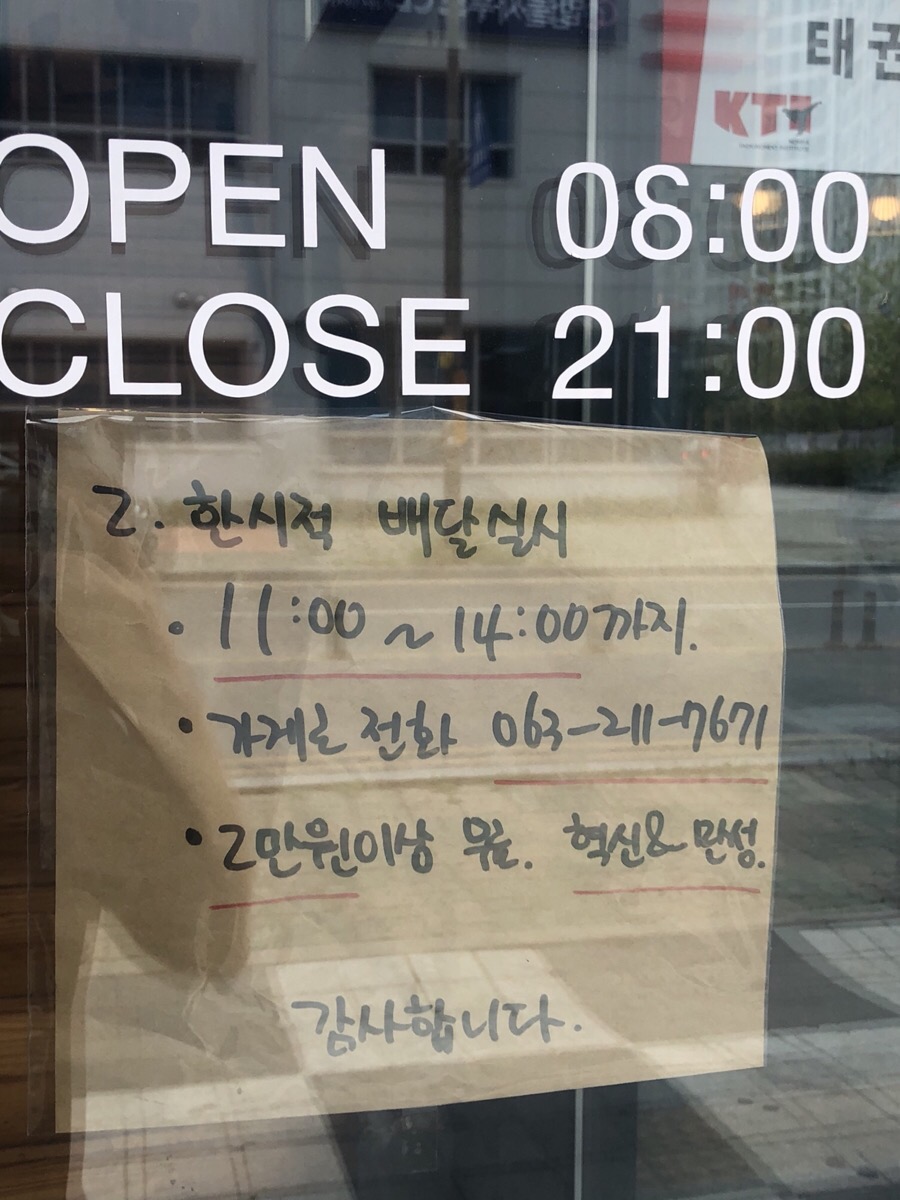 태권
KTT
OPEN 08:00
CLOSE 21:00
2. 한시적 배달실시
· 11:00 ~ 14:00까지.
· 가게로 전화 063-211-7671
· 2만원이상 무료. 혁신&만성.
감사합니다.